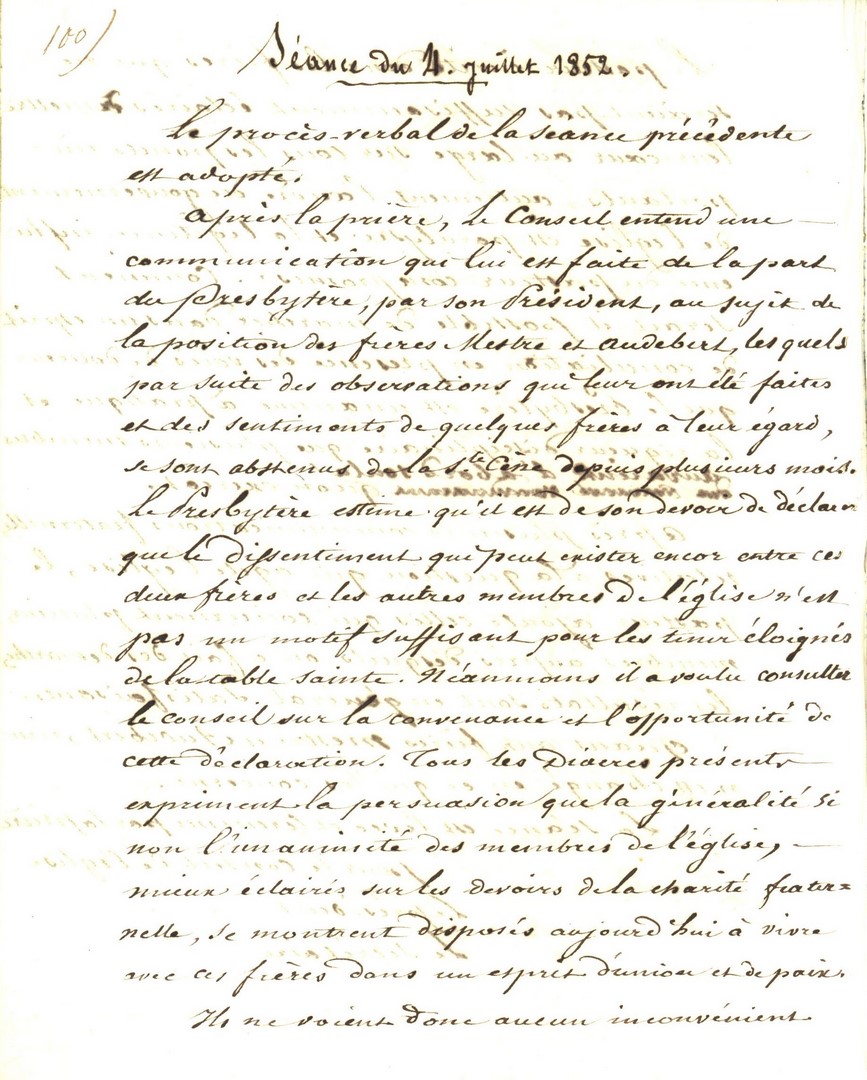 100)
Séance du 4. juillet 1852.
Le procès-verbal de la séance précédente
est adopté.
Après la prière, le Conseil entend une
communication qui lui est faite de la part
du Presbytère, par son Président, au sujet de
la position des frères Mestre et Audebert, lesquels
par suite des observations qui leur ont été faites
et des sentiments de quelques frères à leur égard,
se sont abstenus de la Ste Cène depuis plusieurs mois.
Le Presbytère estime qu'il est de son devoir de déclarer
que le dissentiment qui peut exister encor entre ces
deux frères et les autres membres de l'église n'est
pas un motif suffisant pour les tenir éloignés
de la table sainte. Néanmoins il a voulu consulter
le conseil sur la convenance et l'opportunité de
cette déclaration. Tous les Diacres présents
expriment la persuasion que la généralité si
non l'unanimité des membres de l'église,
mieux éclairés sur les devoirs de la charité frater=
nelle, se montrent disposés aujourd'hui à vivre
avec ces frères dans un esprit d'union et de paix.
Ils ne voient donc aucun inconvénient